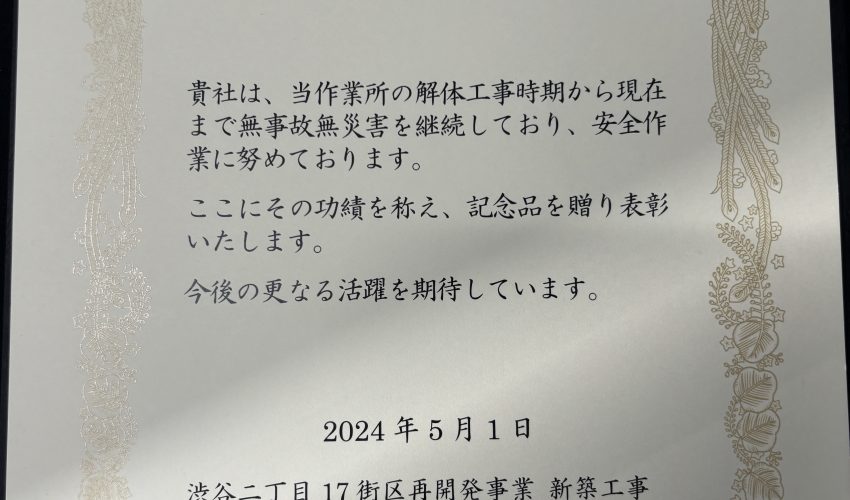 貴社は、当作業所の解体工事時期から現在
まで無事故無災害を継続しており、安全作
業に努めております。
ここにその功績を称え、記念品を贈り表彰
いたします。
今後の更なる活躍を期待しています。
2024年5月1日
渋谷二丁目17街区再開発事業 新築工事